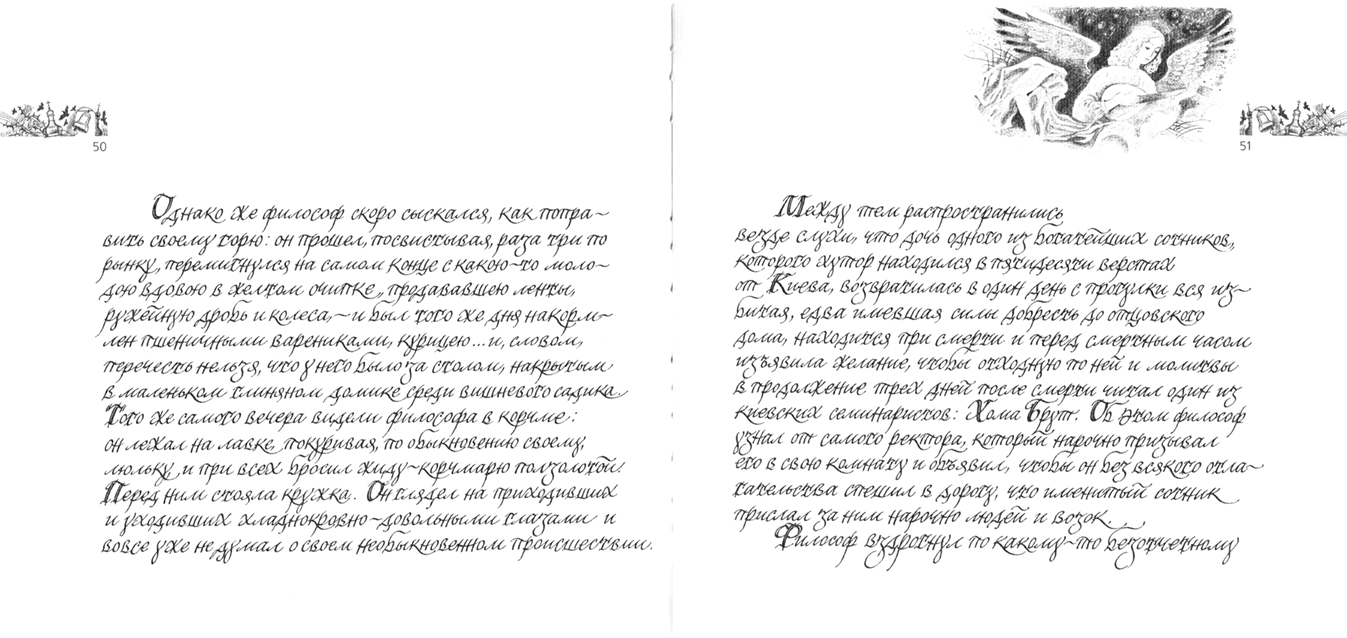 50
Однако же философ скоро сыскался, как попра~
вить своему горю: он прошел, посвистывая, раза три по
рынку, перемигнулся на самом конце с какою-то моло~
дою вдовою в желтом очипке, продававшею ленты,
ружейную дробь и колеса, ~ и был того же дня накорм~
лен пшеничными варениками, курицею... и, словом,
перечесть нельзя, что у него было за столом, накрытым
в маленьком глиняном домике среди вишневого садика.
Того же самого вечера видели философа в корчме:
он лежал на лавке, покуривая, по обыкновению своему,
люльку, и при всех бросил жиду-корчмарю ползолотой.
Перед ним стояла кружка. Он глядел на приходивших
и уходивших хладнокровно-довольными глазами и
вовсе уже не думал о своем необыкновенном происшествии.
51
Между тем распространились
везде слухи, что дочь одного из богатейших сотников,
которого хутор находился в пятидесяти верстах
от Киева, возвратилась в один день с прогулки вся из~
битая, едва имевшая силы добресть до отцовского
дома, находится при смерти и перед смертным часом
изъявила желание, чтобы отходную по ней и молитвы
в продолжение трех дней после смерти читал один из
киевских семинаристов: Хома Брут. Об этом философ
узнал от самого ректора, который нарочно призывал
его в свою комнату и объявил, чтобы он без всякого отла~
гательства спешил в дорогу, что именитый сотник
прислал за ним нарочно людей и возок.
Философ вздрогнул по какому-то безотчетному